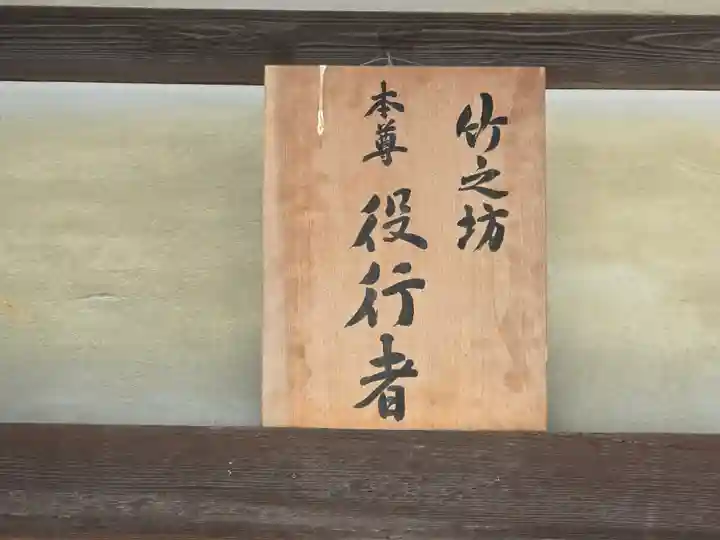 竹之坊
本尊 役行者